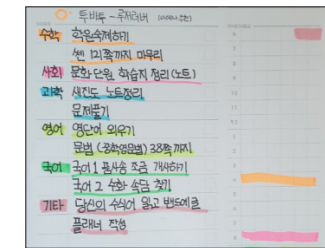 투비투 - 루저러버
수학 학원숙제하기
쎈 121쪽까지 마무리
사회 문화 단원 학습지 정리 (노트)
과학 새진도 노트정리
문제풀기
영어 영단어 외우기
문법 (공학영문법) 38쪽까지
국어 국어 1 품사송 조금 개사하기
국어 2 수화 속담 찾기
기타 당신의 수식어 읽고 밴드에 글
플래너 작성